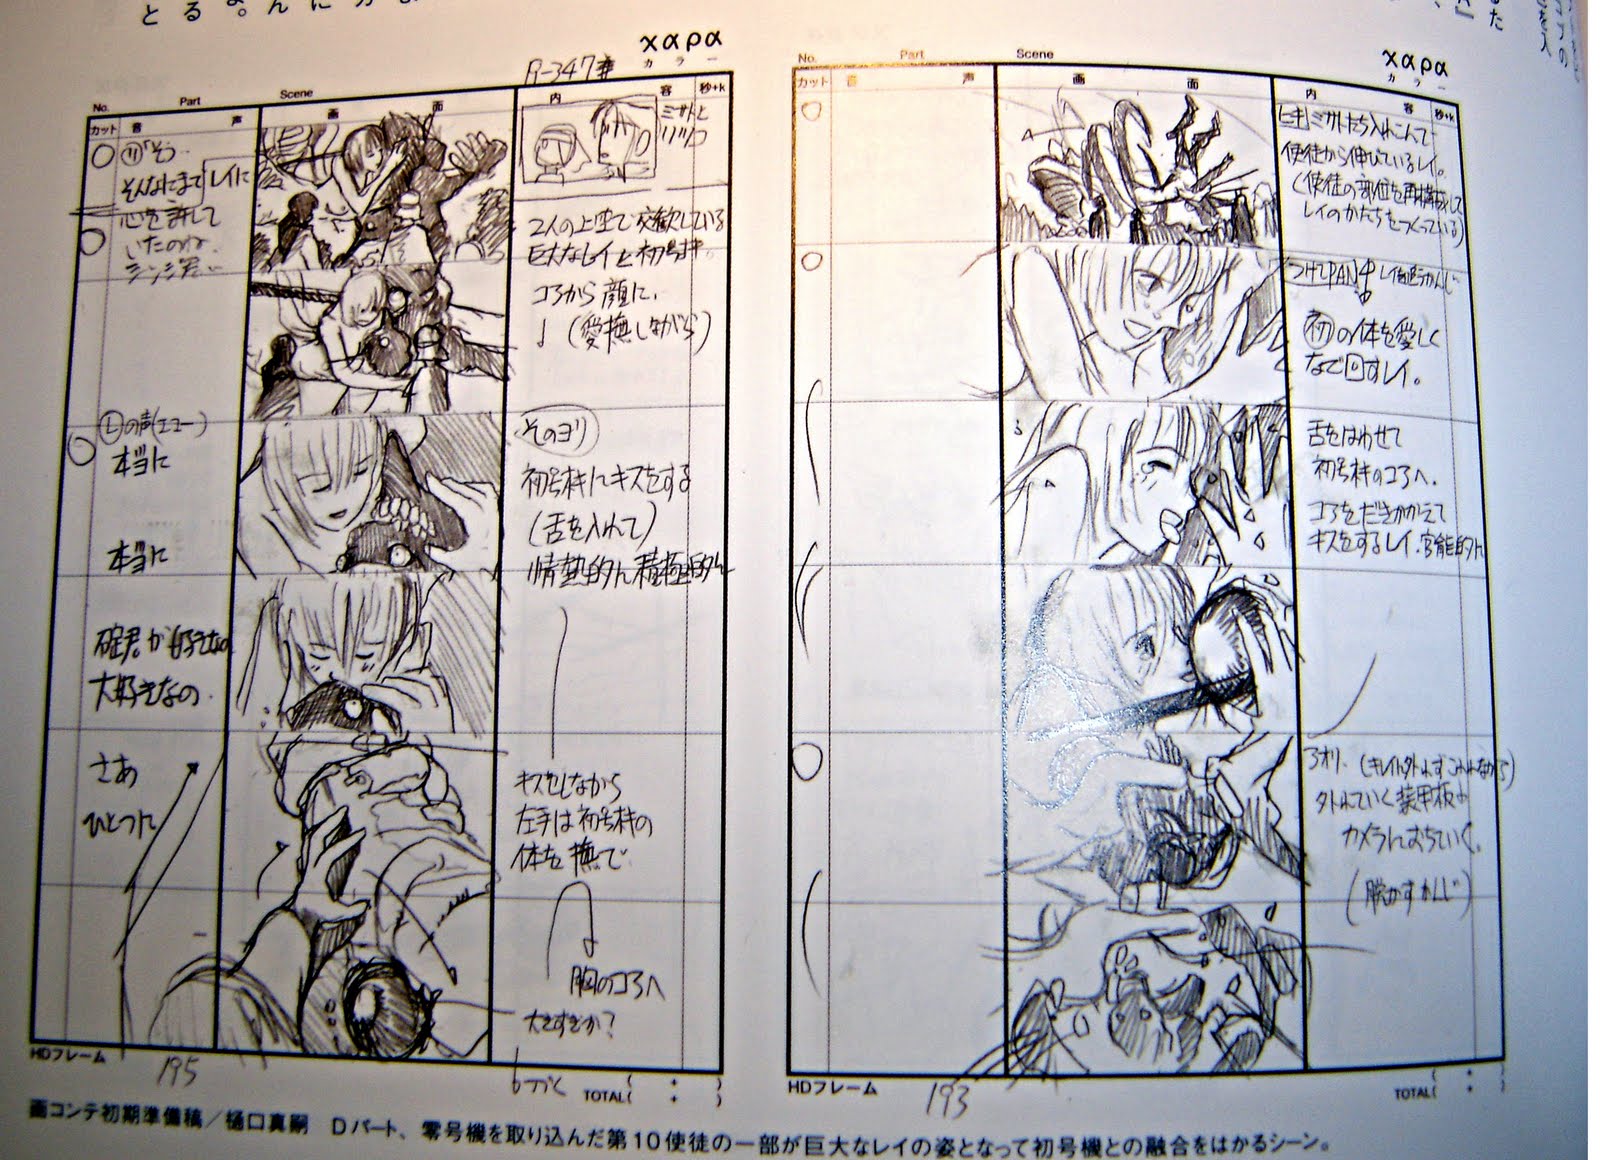 χαρα
カラー
No.
Part
Scene
カット
音
声
画
面
内
容
秒+k
ミサトと
リツコ
「そう…
そんなにまでレイに
心を許して
いたのね
シンジ君…
2人の上空で交歓している
巨大なレイと初号機。
コアから顔に、
↓(愛撫しながら)
Ⓛの声(エコー)
本当に
本当に
そのヨリ
初号機にキスをする
(舌を入れて)
情熱的に積極的に
碇君が好きなの
大好きなの.
さあ
ひとつに
キスをしながら
左手は初号機の
体を撫で
胸のコアへ
大きすぎか?
HDフレーム
195
TOTAL( + )
χαρα
カラー
No.
Part
Scene
カット
音
声
画
面
内
容
秒+k
ヒキ ミサトたち入れこんで
使徒から伸びているレイ。
(使徒の部位を再構成して
レイのかたちをつくっている)
つけPAN
㊞の体を愛しく
なで回すレイ。
舌をはわせて
初号機のコアへ.
コアをだきかかえて
キスをするレイ.官能的に
アオリ.
外れていく装甲板が
カメラにおちていく。
(脱がすかんじ)
HDフレーム
193
TOTAL( + )
画コンテ初期準備稿/樋口真嗣 Dパート、零号機を取り込んだ第10使徒の一部が巨大なレイの姿となって初号機との融合をはかるシーン。